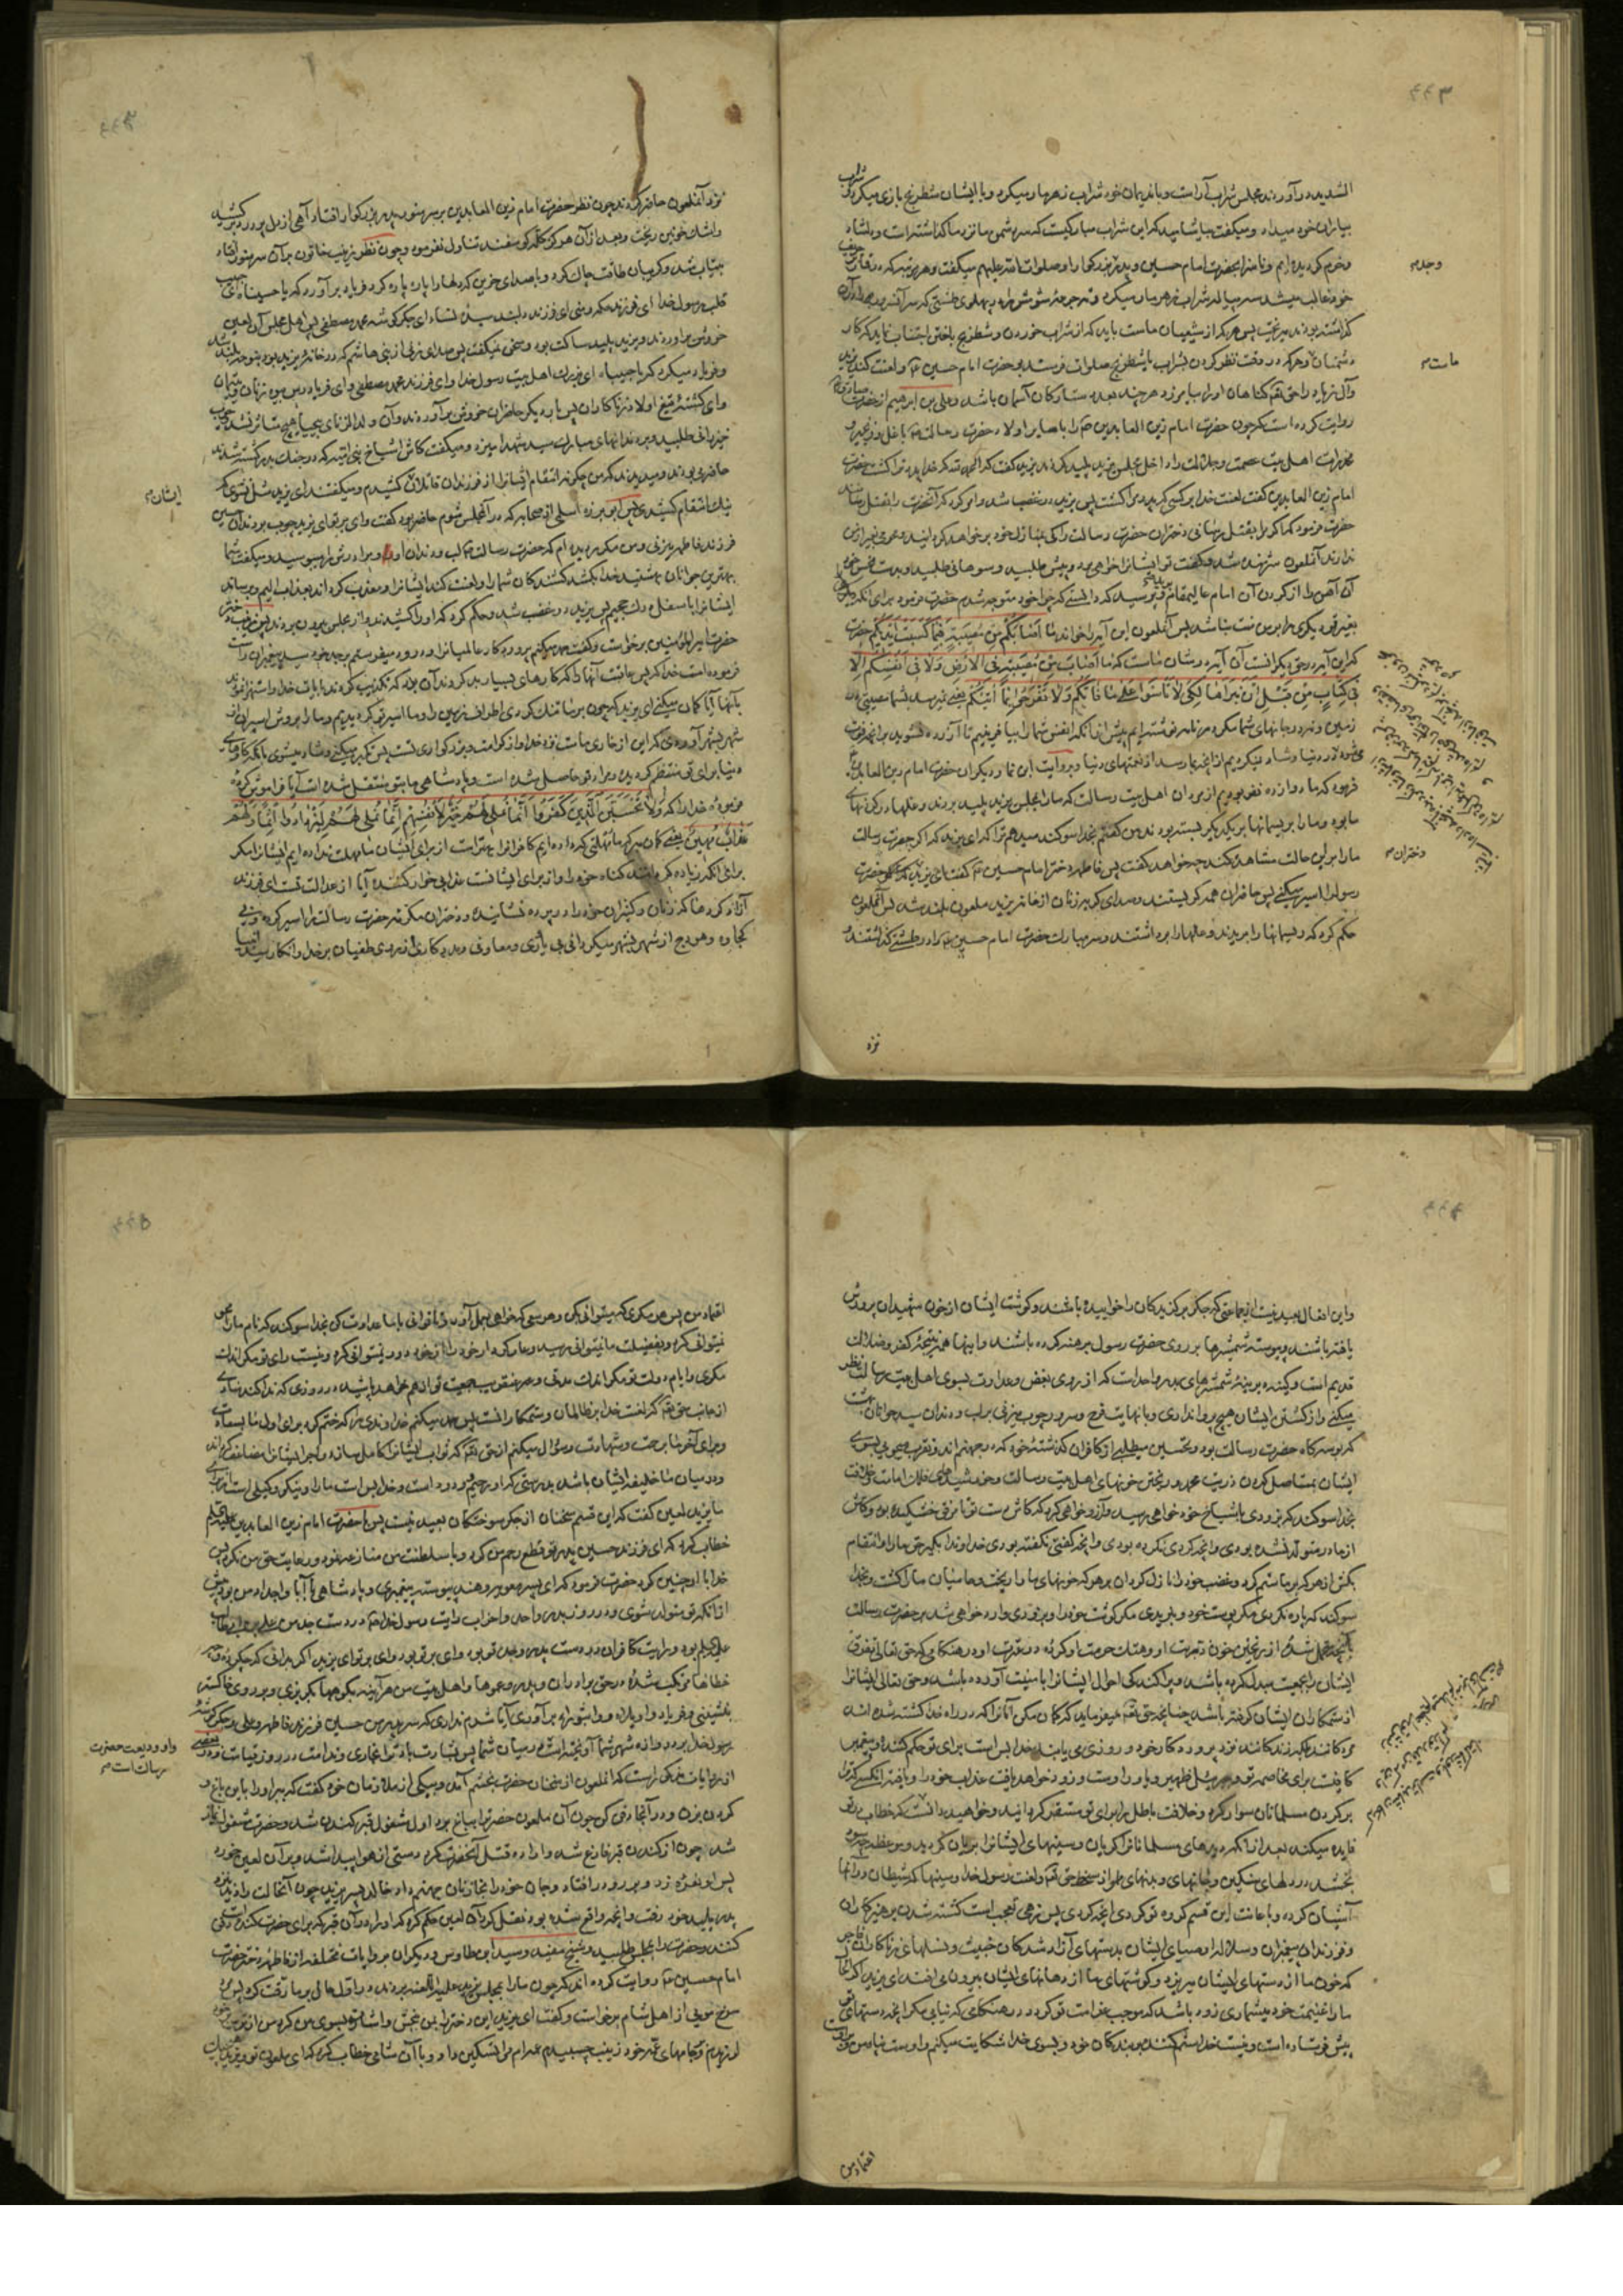 الشدید در آوردند مجلس شراب آراست و با ندیمان خود شراب زهرمار میکرد و با ایشان شطرنج بازی میکرد و شراب
بیاران خود میداد و میکفت بیاشامید که این شراب مبارکیست که سر دشمن ما نزد ما کذاشته است و دلشاد
و خرم کردیده ام و ناسزا بحضرت امام حسین و پدر و جد بزرکوار او صلوات الله علیهم میکفت و هر مرتبه که در قمار بر حریف
خود غالب میشد سه پیاله شراب زهرمار میکرد و ته جرعه شومش را بپهلوی طشتی که سر آنسرور در آن
کذاشته بودند میریخت پس هر که از شیعیان ماست باید که از شراب خوردن و شطرنج باختن اجتناب نماید که کار
دشمنان و هر که در وقت نظر کردن بشراب یا شطرنج صلوات فرستد بر حضرت امام حسین ع و لعنت کند یزید
و آل زیاد را حق تع کناهان او را بیامرزد هر چند بعدد ستارکان آسمان باشد و علی بن ابرهیم از حضرت صادق ع
روایت کرده است که چون حضرت امام زین العابدین ع را با سایر اولاد حضرت رسالت ص با غل و زنجیر و
مخدرات اهل بیت عصمت و جلالت را داخل مجلس یزید پلید کردند یزید کفت که الحمد لله که خدا پدر ترا کشت حضرت
امام زین العابدین کفت لعنت خدا بر کسی که پدر مرا کشت پس یزید در غضب شد و امر کرد که آنحضرت را بقتل رسانند
حضرت فرمود که اگر مرا بقتل رسانی دختران حضرت رسالت را کی بمنازل خود بر خواهد کردانید و محرمی بغیر از من
ندارند آنملعون شرمنده شد و کفت تو ایشانرا خواهی برد و پیش طلبید و سوهانی طلبید و بدست نحس خود
آن آهن را از کردن آن امام عالیمقام و پرسید که دانستی که چرا خود متوجه شدم حضرت فرمود برای آنکه
بغیر تو دیکری را بر من منت نباشد پس آنملعون این آیه را خواند ما اصابکم من مصیبة فبما کسبت ایدیکم حضرت
که این آیه در حق دیکرانست آن آیه در شان ماست که ما اصاب من مصیبة فی الارض ولا فی انفسکم الا
فی کتاب من قبل ان نبراها لکی لا تاسوا علی ما فاتکم ولا تفرحوا بما آتیکم یعنی نمیرسد بشما مصیبتی در
زمین و نه در جانهای شما مکر در نامه نوشته ایم پیش از آنکه انفس شما را بیافرینیم تا آزرده نشوید بر آنچه فوت
شود در دنیا و شاد نکردید از آنچه بما رسد از نعمتهای دنیا و بروایت ابن نما و دیکران حضرت امام زین العابدین
فرمود که ما دوازده نفر بودیم از مردان اهل بیت رسالت که ما را بمجلس یزید پلید بردند و غلها در کردنهای
ما بود و ما را بریسمانها بر یکدیکر بسته بودند من کفتم بخدا سوکند میدهم ترا که ای یزید که اکر حضرت رسالت
ما را بر این حالت مشاهده کند چه خواهد کفت پس فاطمه دختر امام حسین ع کفت ای یزید حضرت
رسول را اسیر میکنی پس حاضران همه کریستند و صدای کریه زنان از خانه یزید ملعون بلند شد پس آنملعون
حکم کرد که ریسمانها را بریدند و غلها را برداشتند و سر مبارک حضرت امام حسین ع را در طشتی کذاشتند
وجد م
ماست م
دختران م
نزد
نزد آنملعون حاضر کردند چون نظر حضرت امام زین العابدین بر سر منور پدر بزرکوار افتاد آهی از دل پر درد بر کشید
و اشک خونین ریخت و بعد از آن هرکز کله کوسفند تناول نفرمود و چون نظر زینب خاتون بر آن سر منور افتاد
بیتاب شد و کریبان طاقت چاک کرد و بصدای حزین که دلها را پاره پاره کرد فریاد بر آورد که یا حسینا و ای حبیب
قلب رسول خدا ای فرزند مکه و منی ای فرزند دلبند سیده نساء ای جکرکوشه محمد مصطفی پس اهل مجلس آن لعین
خروش بر آوردند و یزید پلید ساکت بود و سخن نمیکفت پس صدای زنی از بنی هاشم که در خانه یزید بود بنوحه بلند شد
و فریاد میکرد که یا حبیباه ای بزرک اهل بیت رسول خدا و ای فرزند محمد مصطفی و ای فریاد رس بیوه زنان و یتیمان
و ای کشته تیغ اولاد زناکاران پس بار دیکر حاضران خروش بر آوردند و آن ولد الزنای بیحیا هیچ متاثر نشد چوب
خیزرانی طلبید و بر دندانهای مبارک سید شهدا میزد و میکفت کاش اشیاخ بنی امیه که در جنک بدر کشته شدند
حاضر میبودند و میدیدند که من چکونه انتقام ایشانرا از فرزندان قاتلان کشیدم و میکفتند ای یزید شل نشوی که
نیک انتقام کشیدی پس ابو برزه اسلمی از صحابه که در آنمجلس شوم حاضر بود کفت وای بر تو ای یزید چوب بر دندان حسین
فرزند فاطمه میزنی و من مکرر دیده ام که حضرت رسالت ص لب و دندان او و برادرش را میبوسید و میکفت شما
بهترین جوانان بهشتید خدا بکشد کشندکان شما را و لعنت کند ایشانرا و معذب کرداند بعذاب الیم و برساند
ایشانرا باسفل درک جحیم پس یزید در غضب شد و حکم کرد که او را کشیدند و از مجلس بیرون بردند پس زینب دختر
حضرت امیر المؤمنین برخاست و کفت حمد میکنم پروردکار عالمیان را و درود میفرستم بر جد خود سید پیغمبران راست
فرموده است خدا که پس عاقبت آنها که کارهای بسیار بد کردند آن بود که تکذیب کردند بآیات خدا و استهزا نمودند
بآنها آیا کمان میکنی ای یزید که چون بر ما تنک کردی اطراف زمین را و ما اسیر تو کردیدیم و ما را بروش اسیران از
شهر بشهر آوردی که این از خاری ماست نزد خدا و از کرامت و بزرکواری تست پس تکبر میکنی و شاد میشوی بآنکه کارهای
دنیا برای تو منتظم کردیده و مراد تو حاصل شده است و پادشاهی ما بتو منتقل شده است آیا فراموش کرده
فرموده خدا را که ولا یحسبن الذین کفروا انما نملی لهم خیر لانفسهم انما نملی لهم لیزدادوا اثما و لهم
عذاب مهین یعنی کمان نبرند که ما مهلتی که داده ایم کافرانرا بهتر است از برای ایشان ما مهلت نداده ایم ایشانرا مکر
برای آنکه زیاده کنند کناه خود را و از برای ایشانست عذابی خوار کننده آیا از عدالت تست ای فرزند
آزاد کرده ها که زنان و کنیزان خود را در پرده نشانیده و دختران مکرمه حضرت رسالت را اسیر کرده و بر بی
کجاوه و هودج از شهر بشهر میکردانی بی یاوری و معاونی و مددکاری از روی طغیان بر خدا و انکار سید انبیا
ایشان م
و این افعال بعید نیست از جماعتی که جکر برکزیدکان را خواییده باشند و کوشت ایشان از خون شهیدان پرورش
یافته باشند و پیوسته شمشیرها بر روی حضرت رسول برهنه کرده باشند و اینها همه نتیجه کفر و ضلالت
قدیم است و کینه دیرینه شمشیرهای بدر و احد است که از روی بغض و عداوت بسوی اهل بیت رسالت نظر
میکنی و از کشتن ایشان هیچ پروا نداری و با نهایت فرح و سرور چوب میزنی بر لب و دندان سید جوانان بهشت
که بوسه کاه حضرت رسالت بود و تحسین میطلبی از کافران کذشته خود که در جهنم اند و تقرب میجویی بسوی
ایشان بمستاصل کردن ذریت محمد و ریختن خونهای اهل بیت رسالت و خورشیدهای فلک امامت و خلافت
بخدا سوکند که بزودی باشیاخ خود خواهی رسید و آرزو خواهی کرد که کاش دست تو تا مرفق خشکیده بود و کاش
از مادر متولد نشده بودی و آنچه کردی نکرده بودی و آنچه کفتی نکفته بودی خداوندا بکیر حق ما را و انتقام
بکش از هر که بر ما ستم کرد و غضب خود را نازل کردان بر هر که خونهای ما را ریخت و حامیان ما را کشت و بخدا
سوکند که پاره نکردی مکر پوست خود و نبریدی مکر کوشت خود را و بزودی وارد خواهی شد بر حضرت رسالت
بآنچه متحمل شدی از ریختن خون ذریت او و هتک حرمت او کرده در عترت او در هنکامی که حق تعالی تفرق
ایشان بجمعیت مبدل کرده باشد و پراکندکی احوال ایشانرا بامنیت آورده باشد و حق تعالی ایشانرا
از ستمکاران ایشان کرفته باشد چنانچه حق تع میفرماید که کمان مکن آنانرا که در راه خدا کشته شده اند
مرده کانند بلکه زنده کانند نزد پروردکار خود و روزی می یابند و خدا بس است برای تو حکم کننده و پیغمبر
کافیست برای مخاصمه تو و جبرئیل ظهیر و یاور اوست و زود خواهد یافت عذاب خود را و یافتن آنکس که ترا
بر کردن مسلمانان سوار کرد و خلافت باطل را برای تو مستقر کردانید و خواهید دانست که خطاب تو
فایده میکند بعد از آنکه دیدهای مسلمانانرا کریان و سینهای ایشانرا بریان کردید و موعظه چه سود
بخشد در دلهای سنکین و جانهای و بدنهای مملو از سخط حق تع و لعنت رسول خدا و سینها که شیطان در آنها
آشیان کرده و باعانت این قسم کروه تو کردی آنچه کردی پس زهی تعجب است کشته شدن پرهیزکاران
و فرزندان پیغمبران و سلاله اوصیای ایشان بدستهای آزاد شدکان خبیث و نسلهای زناکاران فاجر
که خون ما از دستهای ایشان میریزد و کوشتهای ما از دهانهای ایشان بیرون می افتد ای یزید اکر امروز
ما را غنیمت خود میشماری زود باشد که موجب غرامت تو کردد در هنکامی که نیابی مکر آنچه دستهای تو
پیش فرستاده است و نیست خدا ستم کننده بر بندکان خود و بسوی خدا شکایت میکنم و اوست پناه من و بر اوست
اعتماد من
اعتماد من پس هر مکری که میتوانی بکن و هر سعی که خواهی بعمل آور و تا توانی با ما عداوت کن بخدا سوکند که نام ما را محو
نمیتوانی کرد و بفضیلت ما نمیتوانی رسید و عار کردار خود را از خود دور نمیتوانی کرد و نیست رای تو مکر اندک
مکری و ایام دولت تو مکر اندک مدتی و عنقریب جمعیت تو از هم خواهد پاشید در روزی که ندا کند منادی
از جانب حق تع که لعنت خدا بر ظالمان و ستمکارانست پس حمد میکنم خداوندی را که ختم کرد برای اول ما بسعادت
و برای آخر ما برحمت و شهادت و سؤال میکنم از حق تع که ثواب ایشانرا کامل سازد و اجر ایشانرا مضاعف کرداند
و در میان ما خلیفه ایشان باشد بدرستی که او رحیم و ودود است و خدا بس است ما را و نیکو وکیلی است از برای
ما یزید لعین کفت که این قسم سخنان از جکر سوختکان بعید نیست پس با حضرت امام زین العابدین علیه السلم
خطاب کرد که ای فرزند حسین پدر تو قطع رحم من کرد و با سلطنت من منازعه نمود و رعایت حق من نکرد پس
خدا با او چنین کرد حضرت فرمود که ای پسر معویه و هند پیوسته پیغمبری و پادشاهی با آبا و اجداد من بود پیش
از آنکه تو متولد شوی و در روز بدر و احد و احزاب رایت رسول خدا ص در دست جد من علی بن ابی طالب
علیه السلم بود و رایت کافران در دست پدر و جد تو بود وای بر تو ای یزید اکر بدانی که چه کرده و چه
خطاها مرتکب شده در حق برادران و پدر و عموها و اهل بیت من هر آینه بکوهها بکریزی و بر روی خاکستر
بنشینی و فریاد واویلاه و واثبوراه بر آوری آیا شرم نداری که سر پدر من حسین فرزند فاطمه و علی و جکرکوشه
رسول خدا بر در دروازه شهر شما آویخته است در میان شما پس بشارت باد ترا بخاری و ندامت در روز قیامت و در بعضی
از روایات مذکور است که آنملعون از سخنان حضرت بخشم آمد و بیکی از ملازمان خود کفت که ببر او را باین باغ و
کردن بزن و در آنجا دفن کن چون آن ملعون حضرترا بباغ برد اول مشغول قبر کندن شد و حضرت مشغول نماز
شد چون از کندن قبر فارغ شد و اراده قتل آنحضرت کرد دستی از هوا پیدا شد و بر آن لعین خورد
پس او نعره زد و بر رو در افتاد و جان خود را بخازنان جهنم داد خالد پسر یزید چون آنحالت را دید نزد
پدر پلید خود رفت و آنچه واقع شده بود نقل کرد آن لعین حکم کرد که او را در آن قبر که برای حضرت کنده است دفن
کنند و حضرت را بمجلس طلبید و شیخ مفید و سید ابن طاوس و دیکران بروایات مختلفه از فاطمه دختر حضرت
امام حسین ع روایت کرده اند که چون ما را بمجلس یزید علیه اللعنه بردند در اول حال بر ما رقت کرد پس مرد
سرخ مویی از اهل شام برخاست و کفت ای یزید این دختر را بمن ببخش و اشاره بسوی من کرد من از ترس بر خود
لرزیدم و بجامهای عمه خود زینب چسبیدم عمه ام مرا تسکین داد و با آن شامی خطاب کرد که ای ملعون تو و یزید
و او ودیعت حضرت
رسالت است م